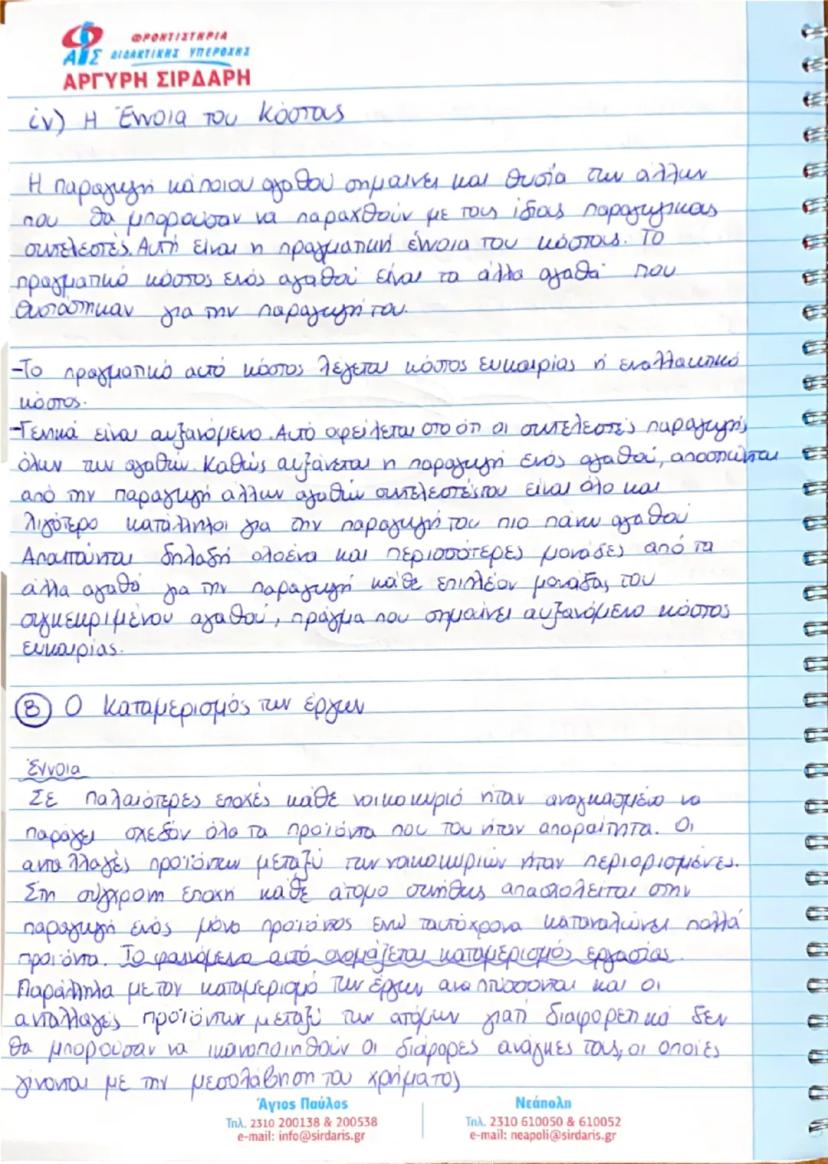 ΦΡΟΝΤΙΣΤΗΡΙΑ
ΑΣ ΔΙΔΑΚΤΙΚΗΣ ΥΠΕΡΟΧΗΣ
ΑΡΓΥΡΗ ΣΙΡΔΑΡΗ
iv) Η Έννοια του Κόστους
Η παραγωγή κάποιου αγαθού σημαίνει και θυσία των άλλων
που θα μπορούσαν να παραχθούν με τους ίδιους παραγωγικούς
συντελεστές. Αυτή είναι η πραγματική έννοια του κόστους. Το
πραγματικό κόστος ενός αγαθού είναι τα άλλα αγαθά που
θυσιάστηκαν για την παραγωγή του.
-Το πραγματικό αυτό κόστος λέγεται κόστος ευκαιρίας ή εναλλακτικό
κόστος.
-Γενικά είναι αυξανόμενο. Αυτό οφείλεται στο ότι οι συντελεστές παραγωγής
όλων των αγαθών. Καθώς αυξάνεται η παραγωγή ενός αγαθού, αποσπώνται
από την παραγωγή άλλων αγαθών συντελεστές που είναι όλο και
λιγότερο κατάλληλοι για την παραγωγή του πιο πάνω αγαθού
Απαιτούνται δηλαδή ολοένα και περισσότερες μονάδες από τα
άλλα αγαθά για την παραγωγή κάθε επιπλέον μονάδας του
συγκεκριμένου αγαθού, πράγμα που σημαίνει αυξανόμενο κόστος
ευκαιρίας.
Β Ο Καταμερισμός των έργων
Έννοια
Σε παλαιότερες εποχές κάθε νοικοκυριό ήταν αναγκασμένο να
παράγει σχεδόν όλα τα προϊόντα που του ήταν απαραίτητα. Οι
ανταλλαγές προϊόντων μεταξύ των νοικοκυριών ήταν περιορισμένες.
Στη σύγχρονη εποχή κάθε άτομο συνήθως απασχολείται στην
παραγωγή ενός μόνο προϊόντος ενώ ταυτόχρονα καταναλώνει πολλά
προϊόντα. Το φαινόμενο αυτό ονομάζεται καταμερισμός εργασίας.
Παράλληλα με τον καταμερισμό των έργων αναπτύσσονται και οι
ανταλλαγές προϊόντων μεταξύ των ατόμων γιατί διαφορετικά δεν
θα μπορούσαν να ικανοποιηθούν οι διάφορες ανάγκες τους, οι οποίες
γίνονται με την μεσολάβηση του χρήματος
Άγιος Παύλος
Τηλ. 2310 200138 & 200538
e-mail: info@sirdaris.gr
Νεάπολη
Τηλ. 2310 610050 & 610052
e-mail: neapoli@sirdaris.gr